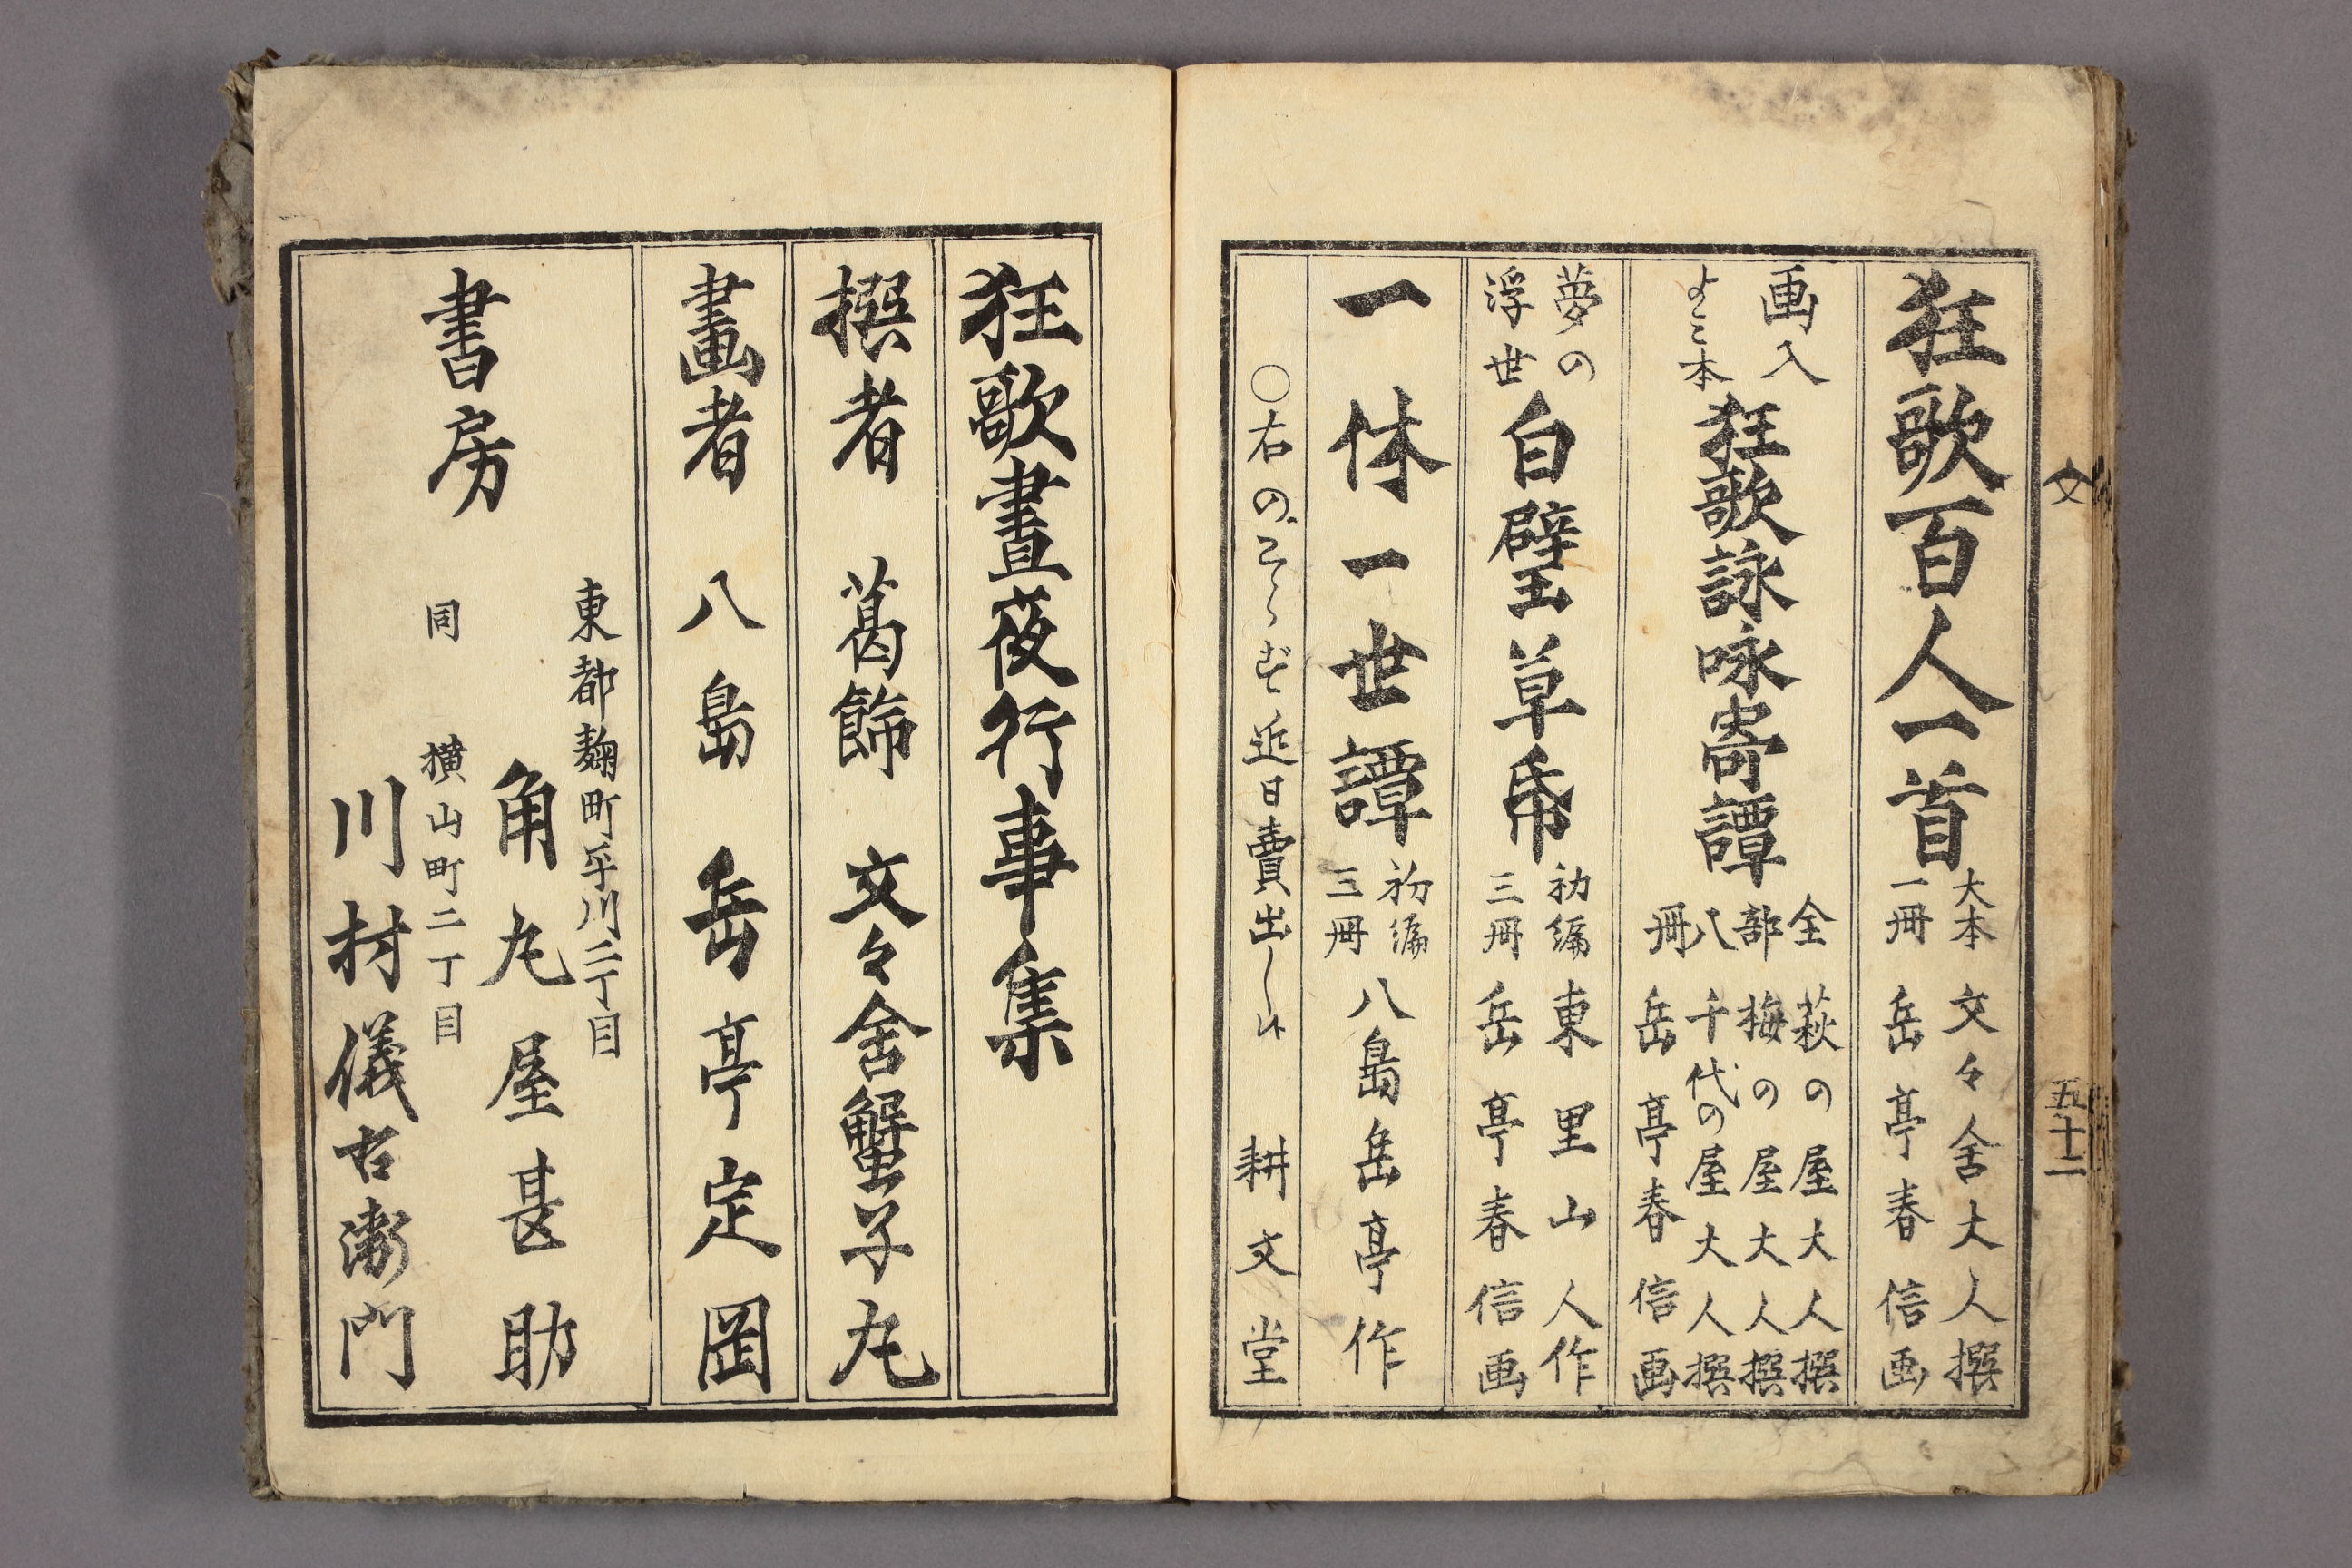 狂歌百人一首
大本
一冊
文々舍大人撰
岳亭春信画
画入
よミ本
狂歌詠咏寄譚
全
部
八
冊
萩の屋大人撰
梅の屋大人撰
千代の屋大人撰
岳亭春信画
夢の
浮世
白璧草帋
初編
三冊
東里山人作
岳亭春信画
一休一世譚
初編
三冊
八島岳亭作
○右の
近日賣出し
耕文堂
文
五十二
狂歌晝夜行事集
撰者 葛飾 文々舍蟹子丸
畫者 八島岳亭定岡
書房
東都麹町平川二丁目
角丸屋甚助
同 横山町二丁目
川村儀右衞門